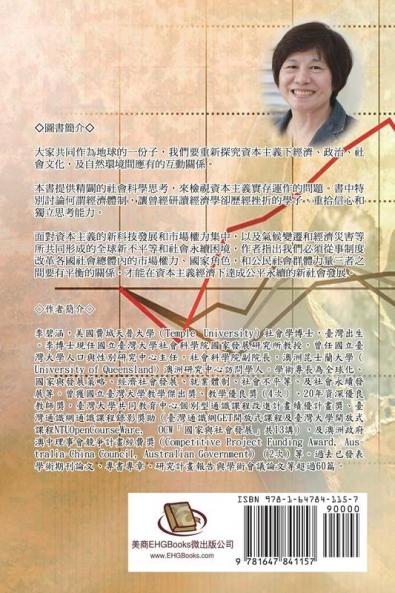 ◇圖書簡介◇
大家共同作為地球的一份子，我們要重新探究資本主義下經濟、政治、社
會文化，及自然環境間應有的互動關係。
本書提供精闢的社會科學思考，來檢視資本主義實存運作的問題。書中特
別討論何謂經濟體制，讓曾經研讀經濟學卻歷經挫折的學子，重拾信心和
獨立思考能力。
面對資本主義的新科技發展和市場權力集中，以及氣候變遷和經濟災害等
所共同形成的全球新不平等和社會永續困境，作者指出我們必須從事制度
改革各國社會總體內的市場權力、國家角色，和公民社會群體力量三者之
間要有平衡的關係，才能在資本主義經濟下達成公平永續的新社會發展。
◇作者簡介◇
李碧涵，美國費城天普大學（Temple University）社會學博士，臺灣出生
。李博士現任國立臺灣大學社會科學院國家發展研究所教授，曾任國立臺
灣大學人口與性別研究中心主任、社會科學院副院長、澳洲昆士蘭大學（
University of Queensland）澳洲研究中心訪問學人。學術專長為全球化、
國家與發展策略、經濟社會發展、就業體制、社會不平等、及社會永續發
展等。曾獲國立臺灣大學教學傑出獎、教學優良獎（4次）、20年資深優良
教師獎、臺灣大學共同教育中心個別型通識課程改進計畫績優計畫獎、臺
灣通識網通識課程錄影獎助（臺灣通識網GET開放式課程及臺灣大學開放式
課程NTUOpenCourseWare, OCW「國家與社會發展」共13講），及澳洲政府
澳中理事會競爭計畫經費獎（Competitive Project Funding Award, Aus-
tralia-China Council, Australian Government）（2次）等。過去已發表
學術期刊論文、專書專章、研究計畫報告與學術會議論文等超過60篇。
美商EHGBooks微出版公司
www.EHGBooks.com
ISBN 978-1-64784-115-7
90000
9 781647 841157